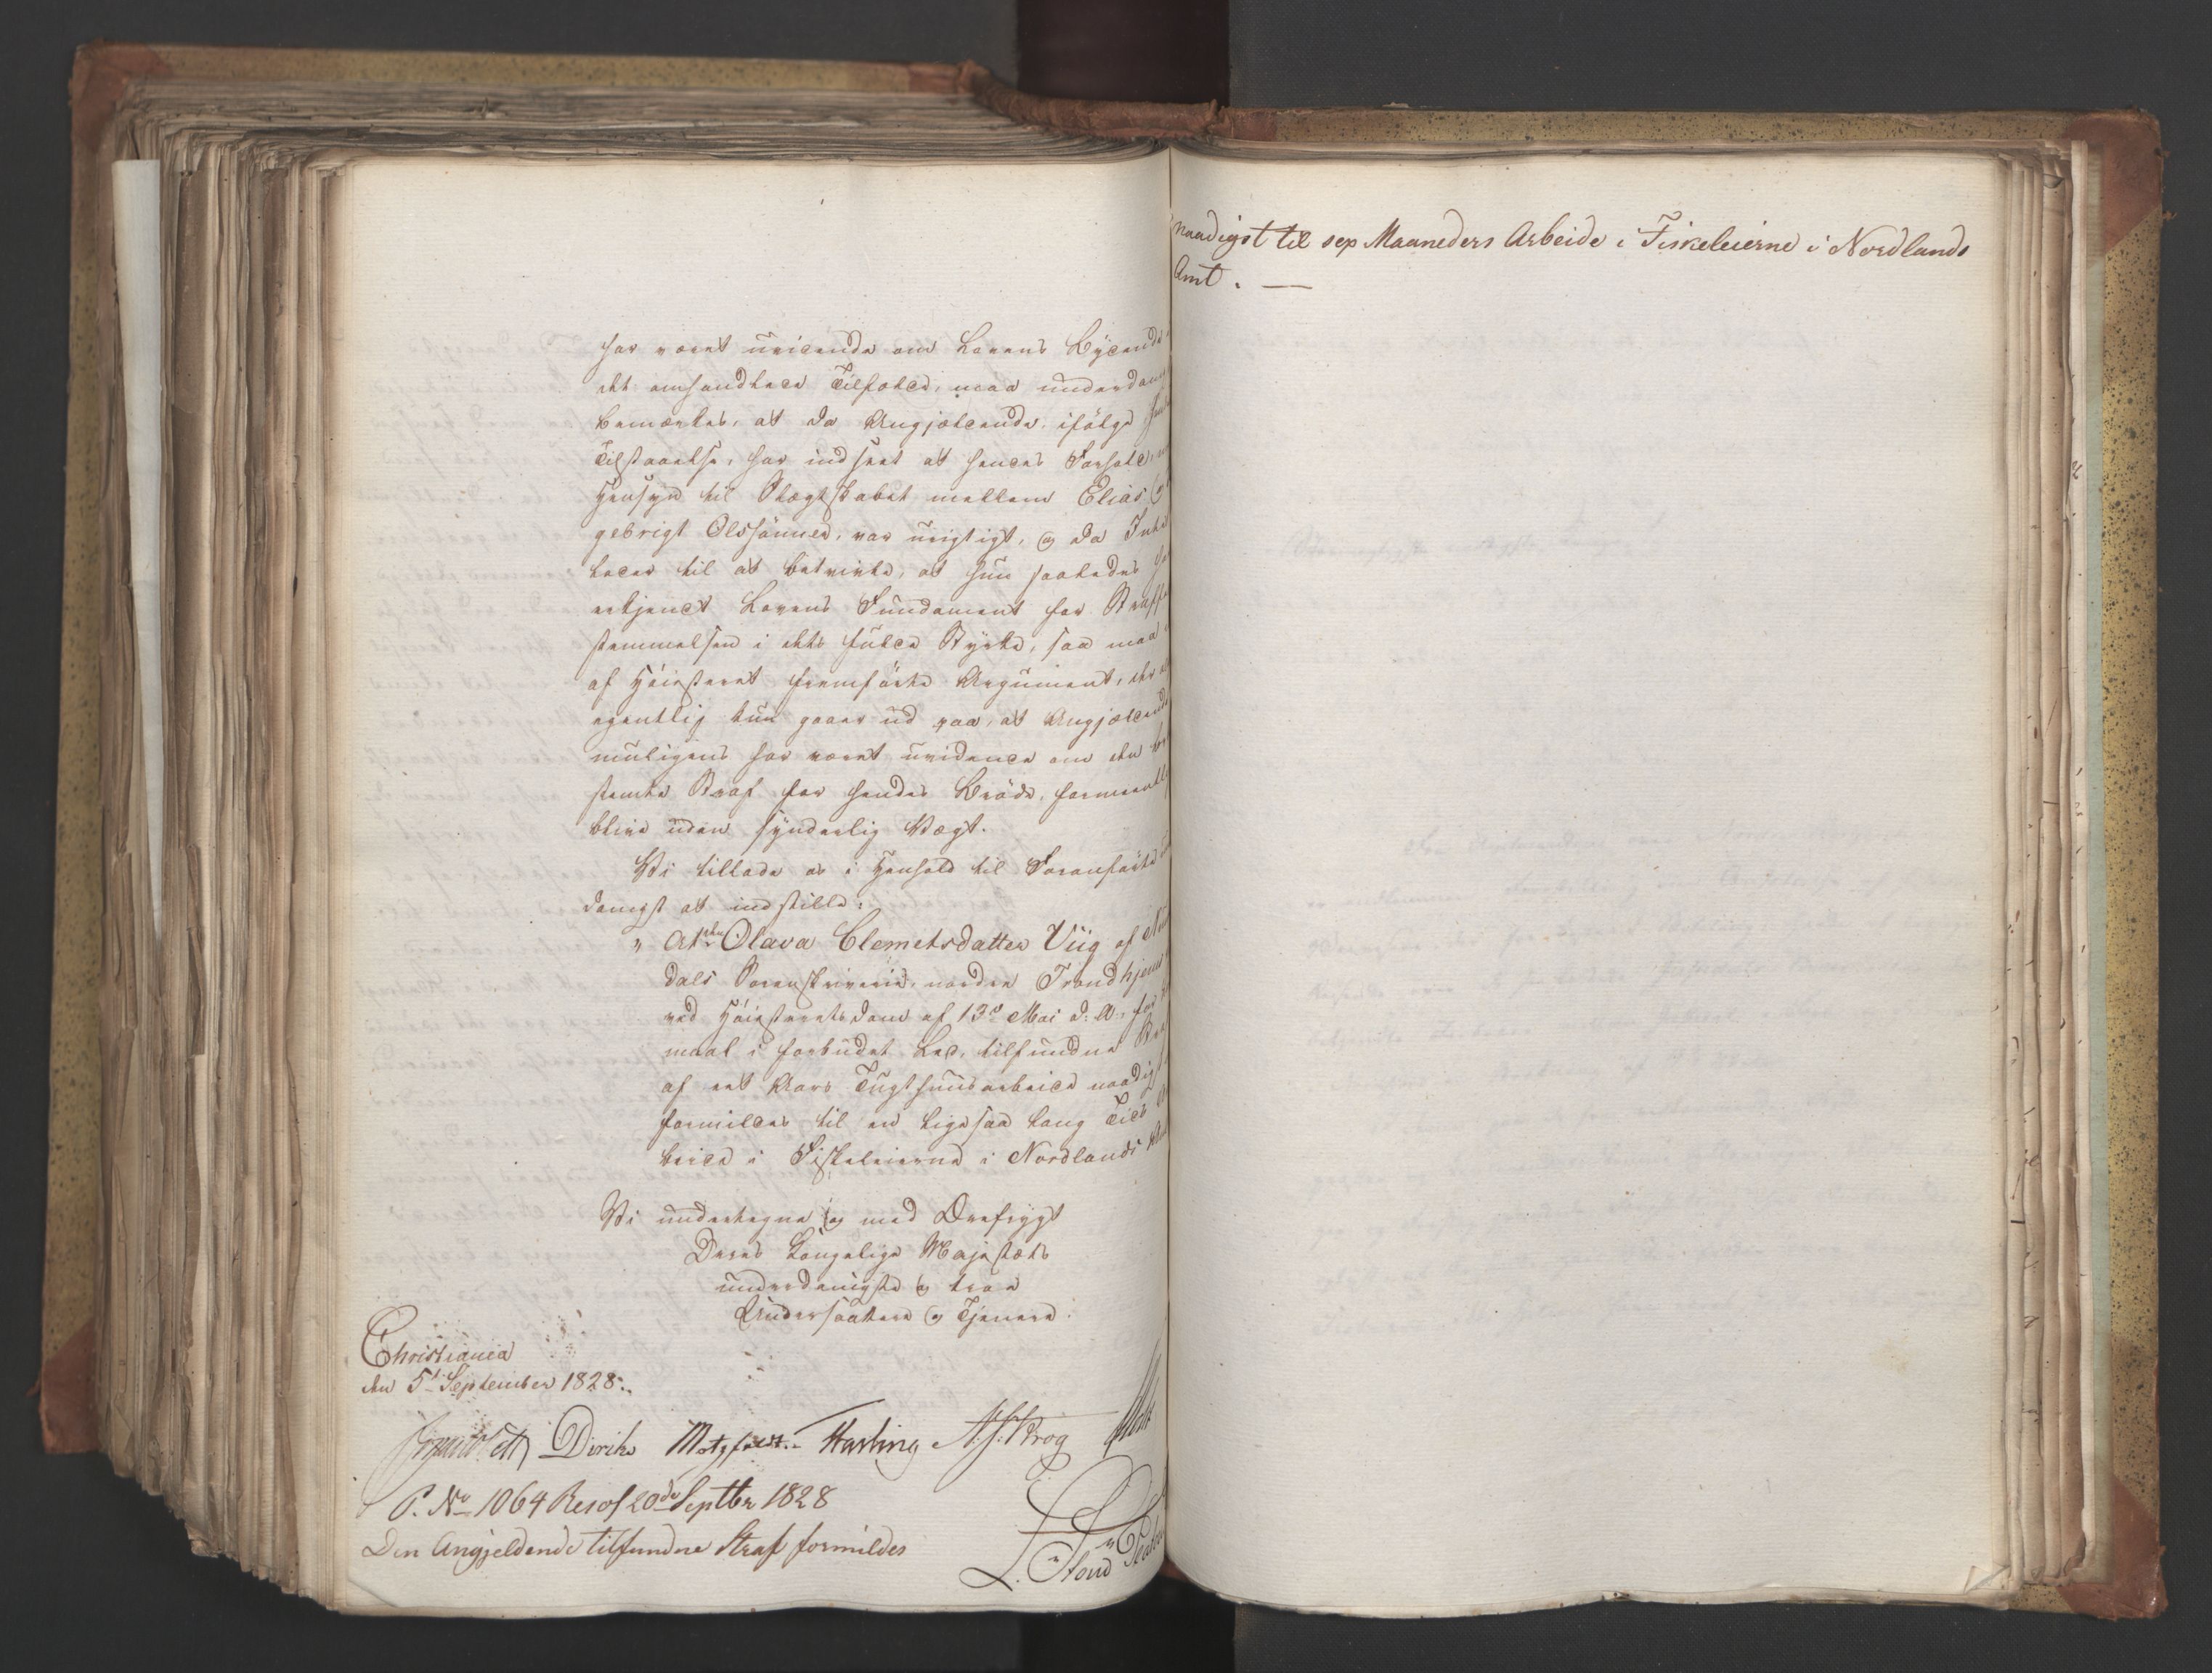 har været uvidende om Lovens Bydende
det omhandlede Tilfælde, maa underdan
bemærkes, at da Angjældende, ifølge
Tilstaaelse, har indseet at hendes Forhold,
Hensyn til Slægtskabet mellem Elias og
gebrigt Olssønner, var urigtigt, og da Intet
leder til at betvivle, at hun saaledes
erkjendt Lovens Fundament for Straffe
stemmelsen i dets fulde Styrke, saa maa
af Høiesteret fremførte Argument, der
egentlig kun gaaer ud paa, at Angjældende
muligens har været uvidende om den be
stemte Straf for hendes Brøde, formeentl
blive uden synderlig Vægt.
Vi tillade os i Henhold til Foranførte
danigst at indstille:
" At den Olava Clemetsdatter Viig af
dals Sorenskriverie, norden Trondhjems
ved Høiesteretsdom af 13de Mai d: A: for
maal i forbudet Led, tilfundne
af eet Aars Tugthuusarbeide naadigst
formildes til en ligesaa lang Tids
beide i Fiskeleierne i Nordlands
Vi undertegne os med Ærefrygt
Deres Kongelige Majestæts
underdanigste og troe
Undersaattere og Tjenere.
Christiania
den 5t September 1828.
Diriks Motzfeldt. Hasling N. J. Krog
P. No 1064 Resol 20de Septbr 1828
Den Angjeldende tilfundne Straf formildes
naadigst til sex Maaneders Arbeide i Fiskeleierne i Nordlands
Amt. —